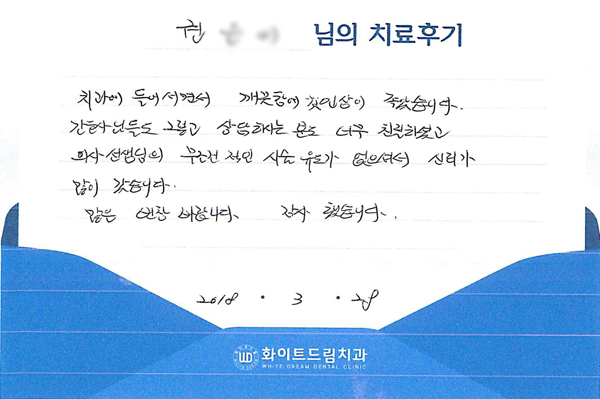 권 님의 치료후기
치과에 들어서면서 깨끗함에 첫인상이 좋았습니다.
간호사님들도 그렇고 상담하시는 분도 너무 친절하셨고
의사선생님의 무조건 적인 시술 유도가 없으셔서 신뢰가
많이 갔습니다.
많은 번창 바랍니다. 감사 했습니다.
2018 . 3 . 28
화이트드림치과
WHITE DREAM DENTAL CLINIC